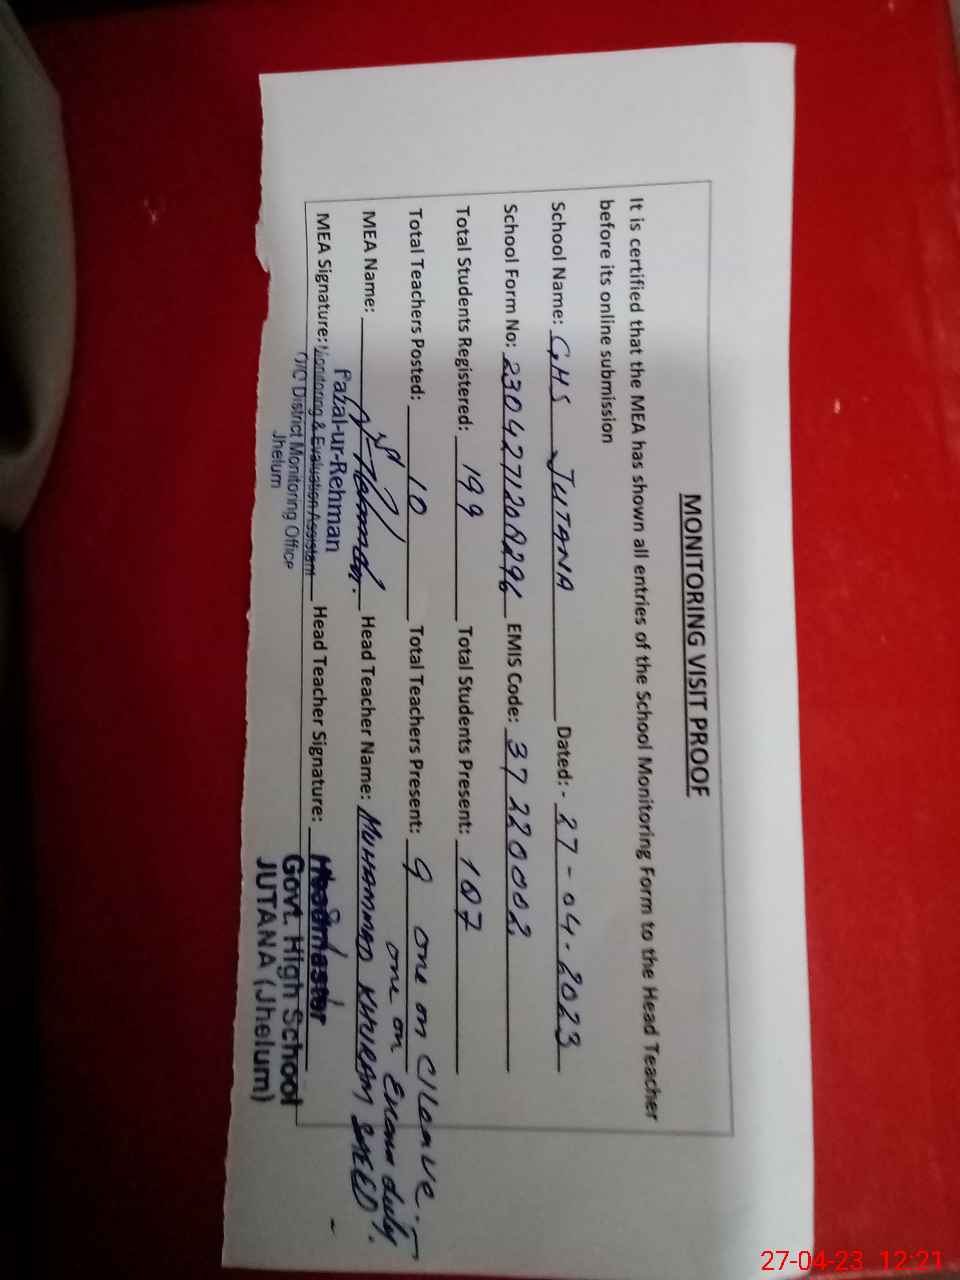 MONITORING VISIT PROOF
It is certified that the MEA has shown all entries of the School Monitoring Form to the Head Teacher
before its online submission
School Name: GHS JUTANA Dated: - 27-04-2023
School Form No: 2304271208296 EMIS Code: 37220002
Total Students Registered: 199 Total Students Present: 107
Total Teachers Posted: 10 Total Teachers Present: 9 one on C/Leave.
one on Exam duty.
MEA Name: Head Teacher Name: MUHAMMAD KHURAM SAEED
Fazal-ur-Rehman
MEA Signature: Monitoring & Evaluation Assistant Head Teacher Signature: Headmaster
O/C District Monitoring Office
Jhelum
Govt. High School
JUTANA (Jhelum)
27-04-23 12:21